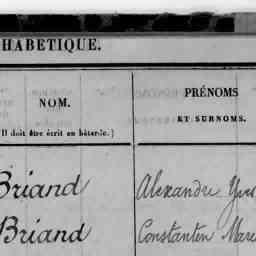 HABETIQUE.
NOM.
Il doit être écrit en bâtarde.)
PRÉNOMS
ET SURNOMS.
Briand Alexandre
Briand Constanten